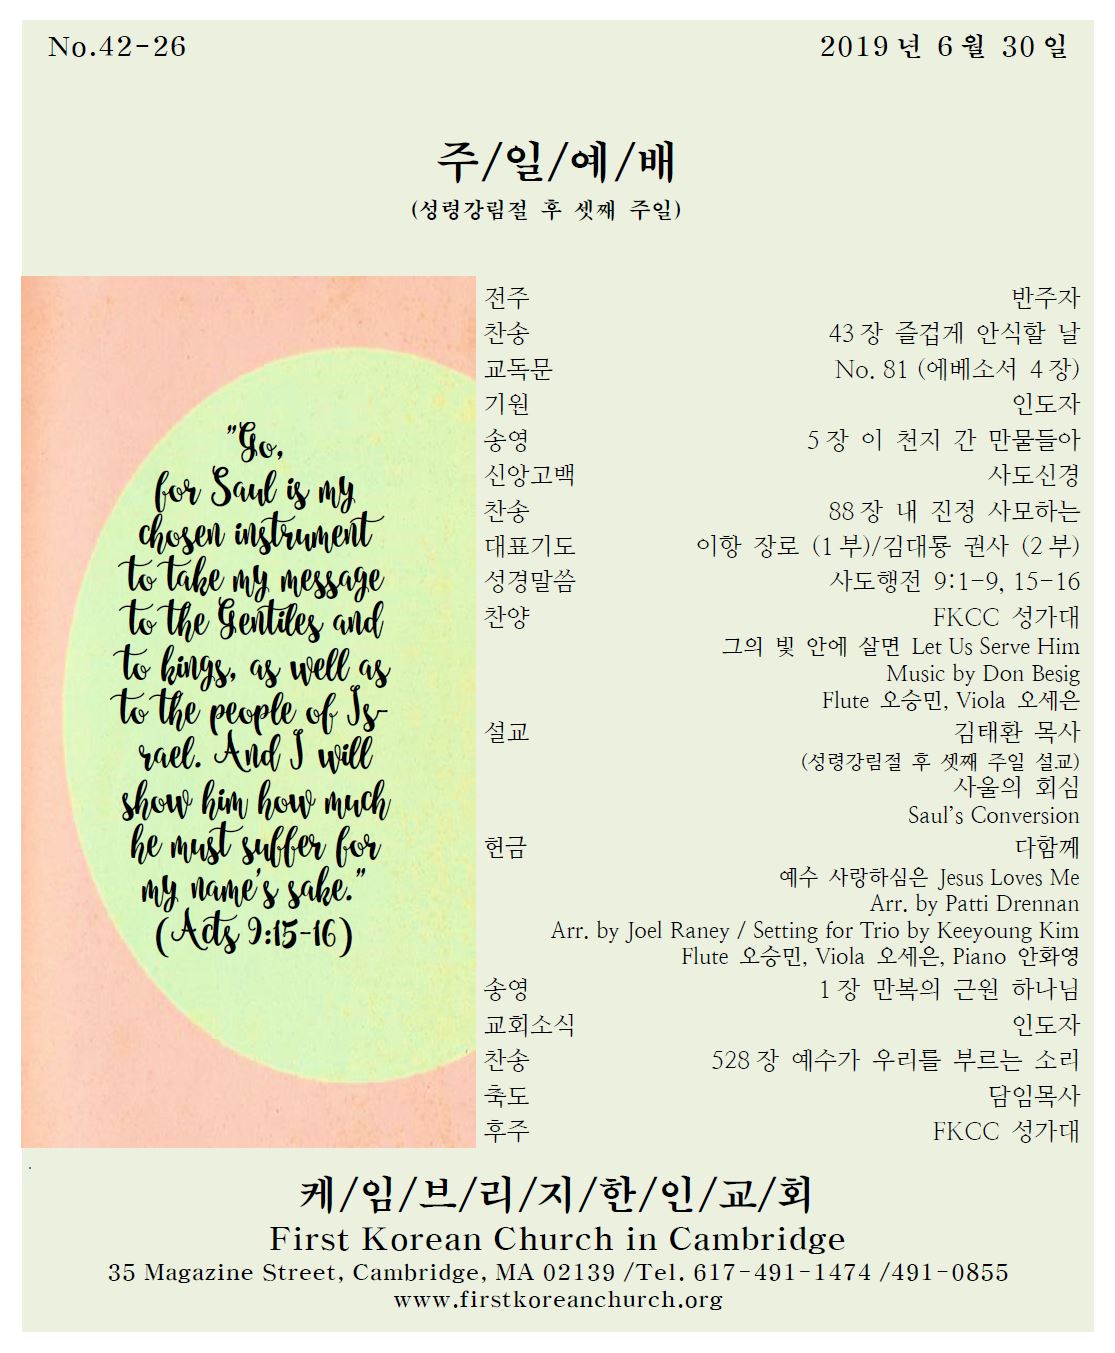 No.42-26
2019년 6월 30일
주/일/예/배
(성령강림절 후 셋째 주일)
"Go,
for Saul is my
chosen instrument
to take my message
to the Gentiles and
to kings, as well as
to the people of Is-
rael. And I will
show him how much
he must suffer for
my name's sake."
(Acts 9:15-16)
전주 반주자
찬송 43장 즐겁게 안식할 날
교독문 No. 81 (에베소서 4장)
기원 인도자
송영 5장 이 천지 간 만물들아
신앙고백 사도신경
찬송 88장 내 진정 사모하는
대표기도 이항 장로 (1부)/김대룡 권사 (2부)
성경말씀 사도행전 9:1-9, 15-16
찬양 FKCC 성가대
그의 빛 안에 살면 Let Us Serve Him
Music by Don Besig
Flute 오승민, Viola 오세은
설교 김태환 목사
(성령강림절 후 셋째 주일 설교)
사울의 회심
Saul's Conversion
헌금 다함께
예수 사랑하심은 Jesus Loves Me
Arr. by Patti Drennan
Arr. by Joel Raney / Setting for Trio by Keeyoung Kim
Flute 오승민, Viola 오세은, Piano 안화영
송영 1장 만복의 근원 하나님
교회소식 인도자
찬송 528장 예수가 우리를 부르는 소리
축도 담임목사
후주 FKCC 성가대
케/임/브/리/지/한/인/교/회
First Korean Church in Cambridge
35 Magazine Street, Cambridge, MA 02139 /Tel. 617-491-1474 /491-0855
www.firstkoreanchurch.org